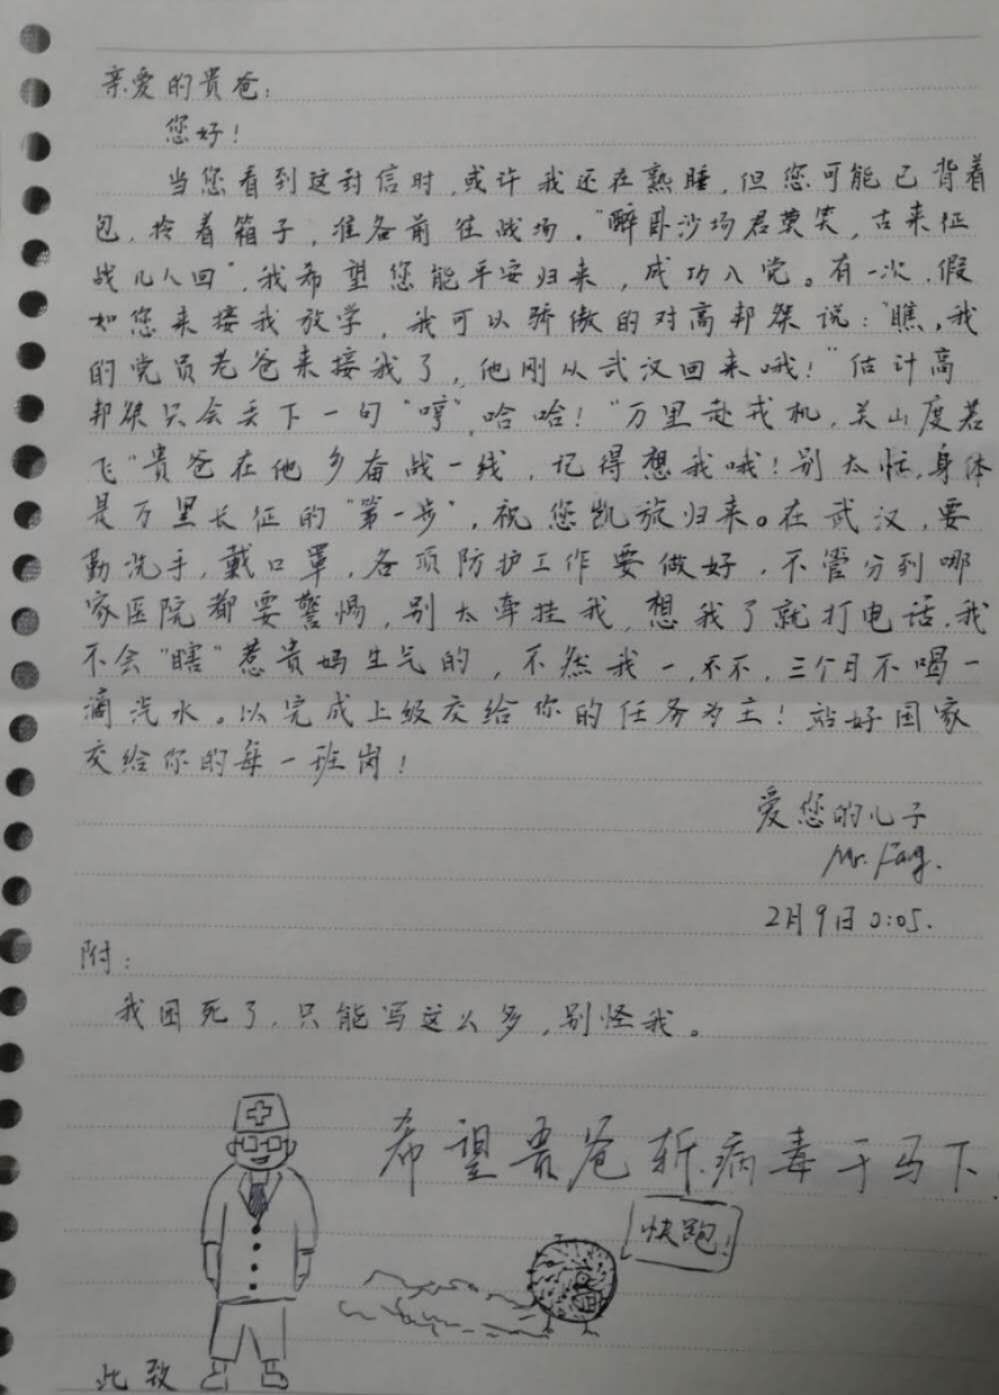 亲爱的贵爸:
您好!
当您看到这封信时,或许我还在熟睡,但您可能已背着
包,拎着箱子,准备前往战场。"醉卧沙场君莫笑,古来征
战几人回",我希望您能平安归来,成功入党。有一次,假
如您来接我放学,我可以骄傲的对高邦桀说:"瞧,我
的党员老爸来接我了,他刚从武汉回来哦!"估计高
邦桀只会丢下一句"哼",哈哈!"万里赴戎机,关山度若
飞"贵爸在他乡奋战一线,记得想我哦!别太忙,身体
是万里长征的"第一步",祝您凯旋归来。在武汉,要
勤洗手,戴口罩,各项防护工作要做好,不管分到哪
家医院都要警惕,别太牵挂我,想我了就打电话,我
不会"瞎"惹贵妈生气的,不然我一,不不,三个月不喝一
滴汽水。以完成上级交给你的任务为主!站好国家
交给你的每一班岗!
爱您的儿子
Mr. Fang.
2月9日0:05.
附:
我困死了,只能写这么多,别怪我。
希望吾爸斩病毒于马下
快跑!
此致